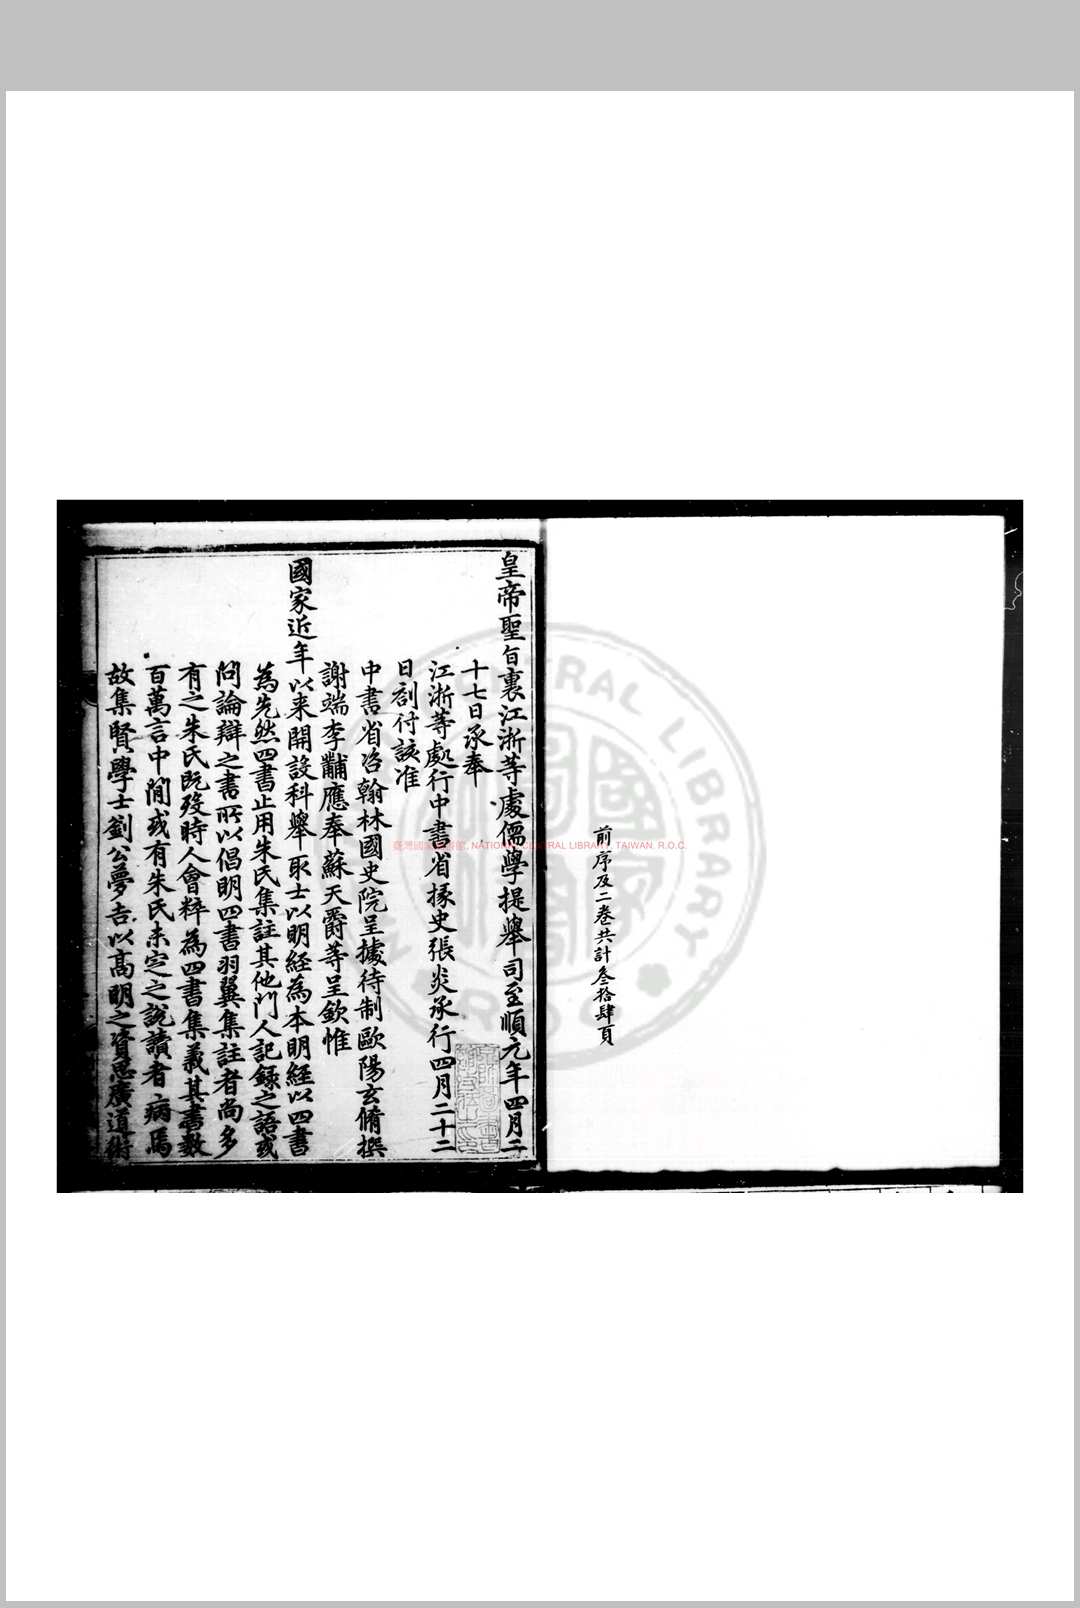 前序及二卷共計叄拾肆頁
皇帝聖旨裏江浙等處儒學提舉司至順元年四月二
十七日承奉
江浙等處行中書省掾史張炎承行四月二十二
日劄付該准
中書省咨翰林國史院呈據待制歐陽玄脩撰
謝端李黼應奉蘇天爵等呈欽惟
國家近年以来開設科舉取士以明經為本明經以四書
為先然四書止用朱氏集註其他門人記録之語或
問論辯之書所以倡明四書羽翼集註者尚多
有之朱氏既歿時人會粹為四書集義其書數
百萬言中間或有朱氏未定之說讀者病焉
故集賢學士劉公夢吉以高明之資思廣道術
臺灣國家圖書館, NATIONAL CENTRAL LIBRARY, TAIWAN, R.O.C.
NATIONAL CENTRAL LIBRARY
R.O.C.